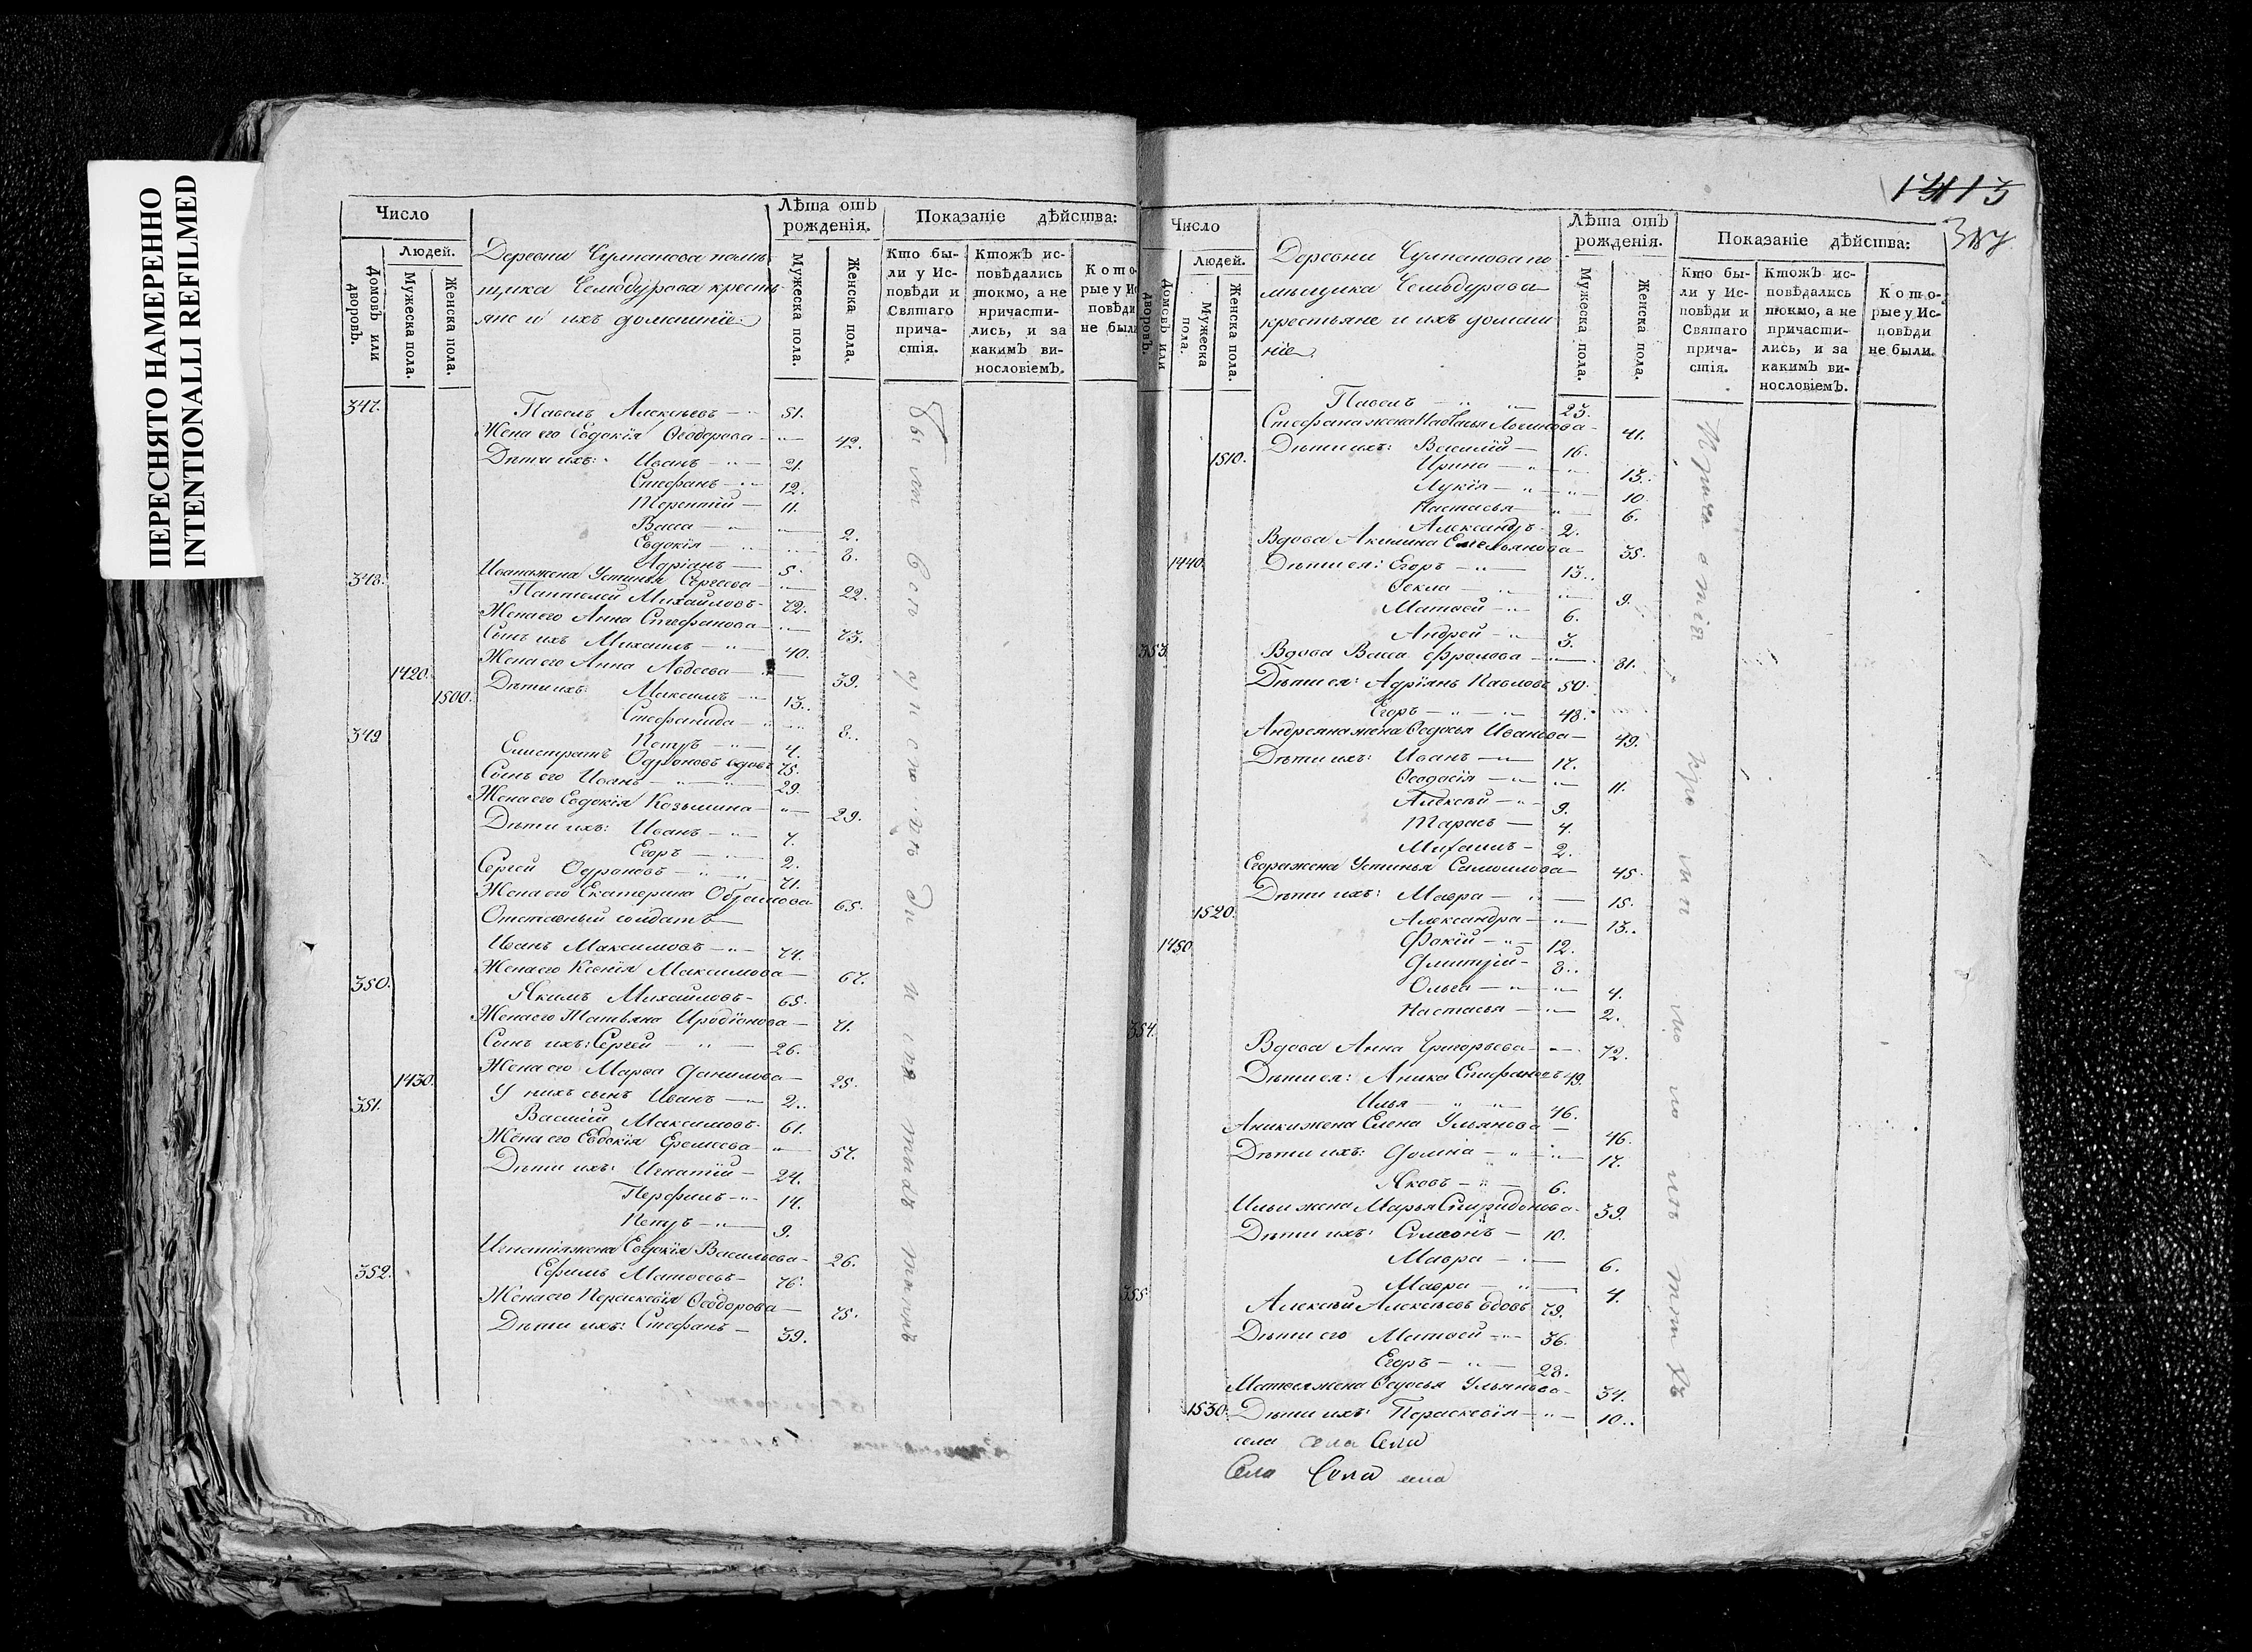 ПЕРЕСНЯТО НАМЕРЕННО
INTENTIONALLI REFILMED
Число
Людей.
Домовъ или дворовъ.
Мужеска пола.
Женска пола.
Деревни Чулпанова помѣ
щика крестья
яне и ихъ домашніе.
Лѣта отъ рожденія.
Мужеска пола.
Женска пола.
Показаніе дѣйства:
Кто бы-
ли у Ис-
повѣди и
Святаго
прича-
стія.
Ктожъ ис-
повѣдались
токмо, а не
причасти-
лись, и за
какимъ ви-
нословіемъ.
Кото
рые у Ис
повѣди
не были
347. Павелъ Алексѣевъ 51.
Жена его Евдокія Ѳеодорова 42.
Дѣти ихъ: Иванъ 21.
Стефанъ 12.
Терентій 11.
Васса 2.
Евдокія 8.
Адріанъ 5.
Ивана жена Устинья Сергеева 22.
348. Пантелей Михайловъ 72.
Жена его Анна Стефанова 73.
Сынъ ихъ Михаилъ 40.
Жена его Анна Авдеева 39.
1420. Дѣти ихъ: Максимъ 13.
1500. Стефанида 8.
Петръ 4.
349 Елистратъ Одроновъ вдовъ 75.
Сынъ его Иванъ 29.
Жена его Евдокія Козьмина 29.
Дѣти ихъ: Иванъ 7.
Егоръ 2.
Сергей Одроновъ 71.
Жена его Екатерина 65.
Отставный солдатъ
Иванъ Максимовъ 74.
Жена его Ксенія Максимова 67.
350. Якимъ Михайловъ 65.
Жена его Татьяна Иродіонова 71.
Сынъ ихъ: Сергей 26.
Жена его Марѳа Данилова 25.
1430. У нихъ сынъ Иванъ 2.
351. Василій Максимовъ 61.
Жена его Евдокія Еремеева 57.
Дѣти ихъ: Игнатій 24.
Перфилъ 14.
Петръ 9.
Игнатія жена Евдокія Васильева 26.
352. Ефимъ Матвеевъ 76.
Жена его Пераскевія Ѳеодорова 75.
Дѣти ихъ: Стефанъ 39.
1413
387
Число
Людей.
Домовъ или дворовъ.
Мужеска пола.
Женска пола.
Деревни Чулпанова по
мѣщика
крестьяне и ихъ домаш
ніе.
Лѣта отъ рожденія.
Мужеска пола.
Женска пола.
Показаніе дѣйства:
Кто бы-
ли у Ис-
повѣди и
Святаго
прича-
стія.
Ктожъ ис-
повѣдались
токмо, а не
причасти-
лись, и за
какимъ ви-
нословіемъ.
Кото-
рые у Ис-
повѣди
не были.
Павелъ 23.
Стефана жена Настасья Логинова 41.
Дѣти ихъ: Василій 16.
1510. Ирина 13.
Лукія 10.
Настасья 6.
Александръ 2.
Вдова Акилина Емельянова 35.
1440. Дѣти ея: Егоръ 13.
Ѳекла 9.
Матвей 6.
Андрей 3.
353. Вдова Васса Фролова 81.
Дѣти ея: Адріянъ Павловъ 50.
Егоръ 48.
Андреяна жена Ѳедосья Иванова 49.
Дѣти ихъ: Иванъ 17.
Ѳеодосія 11.
Алексѣй 9.
Тарасъ 4.
Михаилъ 2.
Егора жена Устинья Самоилова 45.
Дѣти ихъ: Мавра 15.
1520. Александра 13.
Фокій 12.
1450 Дмитрій 8.
Ольга 4.
Настасья 2.
354. Вдова Анна Григорьева 72.
Дѣти ея: Аника Епифановъ 49.
Илья 46.
Аники жена Елена Ульянова 46.
Дѣти ихъ: Домна 17.
Яковъ 6.
Ильи жена Марья Спиридонова 39.
Дѣти ихъ: Симеонъ 10.
Мавра 6.
Мавра 4.
355. Алексѣй Алексѣевъ вдовъ 79.
Дѣти его Матвей 36.
Егоръ 28.
Матвея жена Ѳедосья Ульянова 34.
1530. Дѣти ихъ: Пераскевія 10.
села села Села
Села Села села